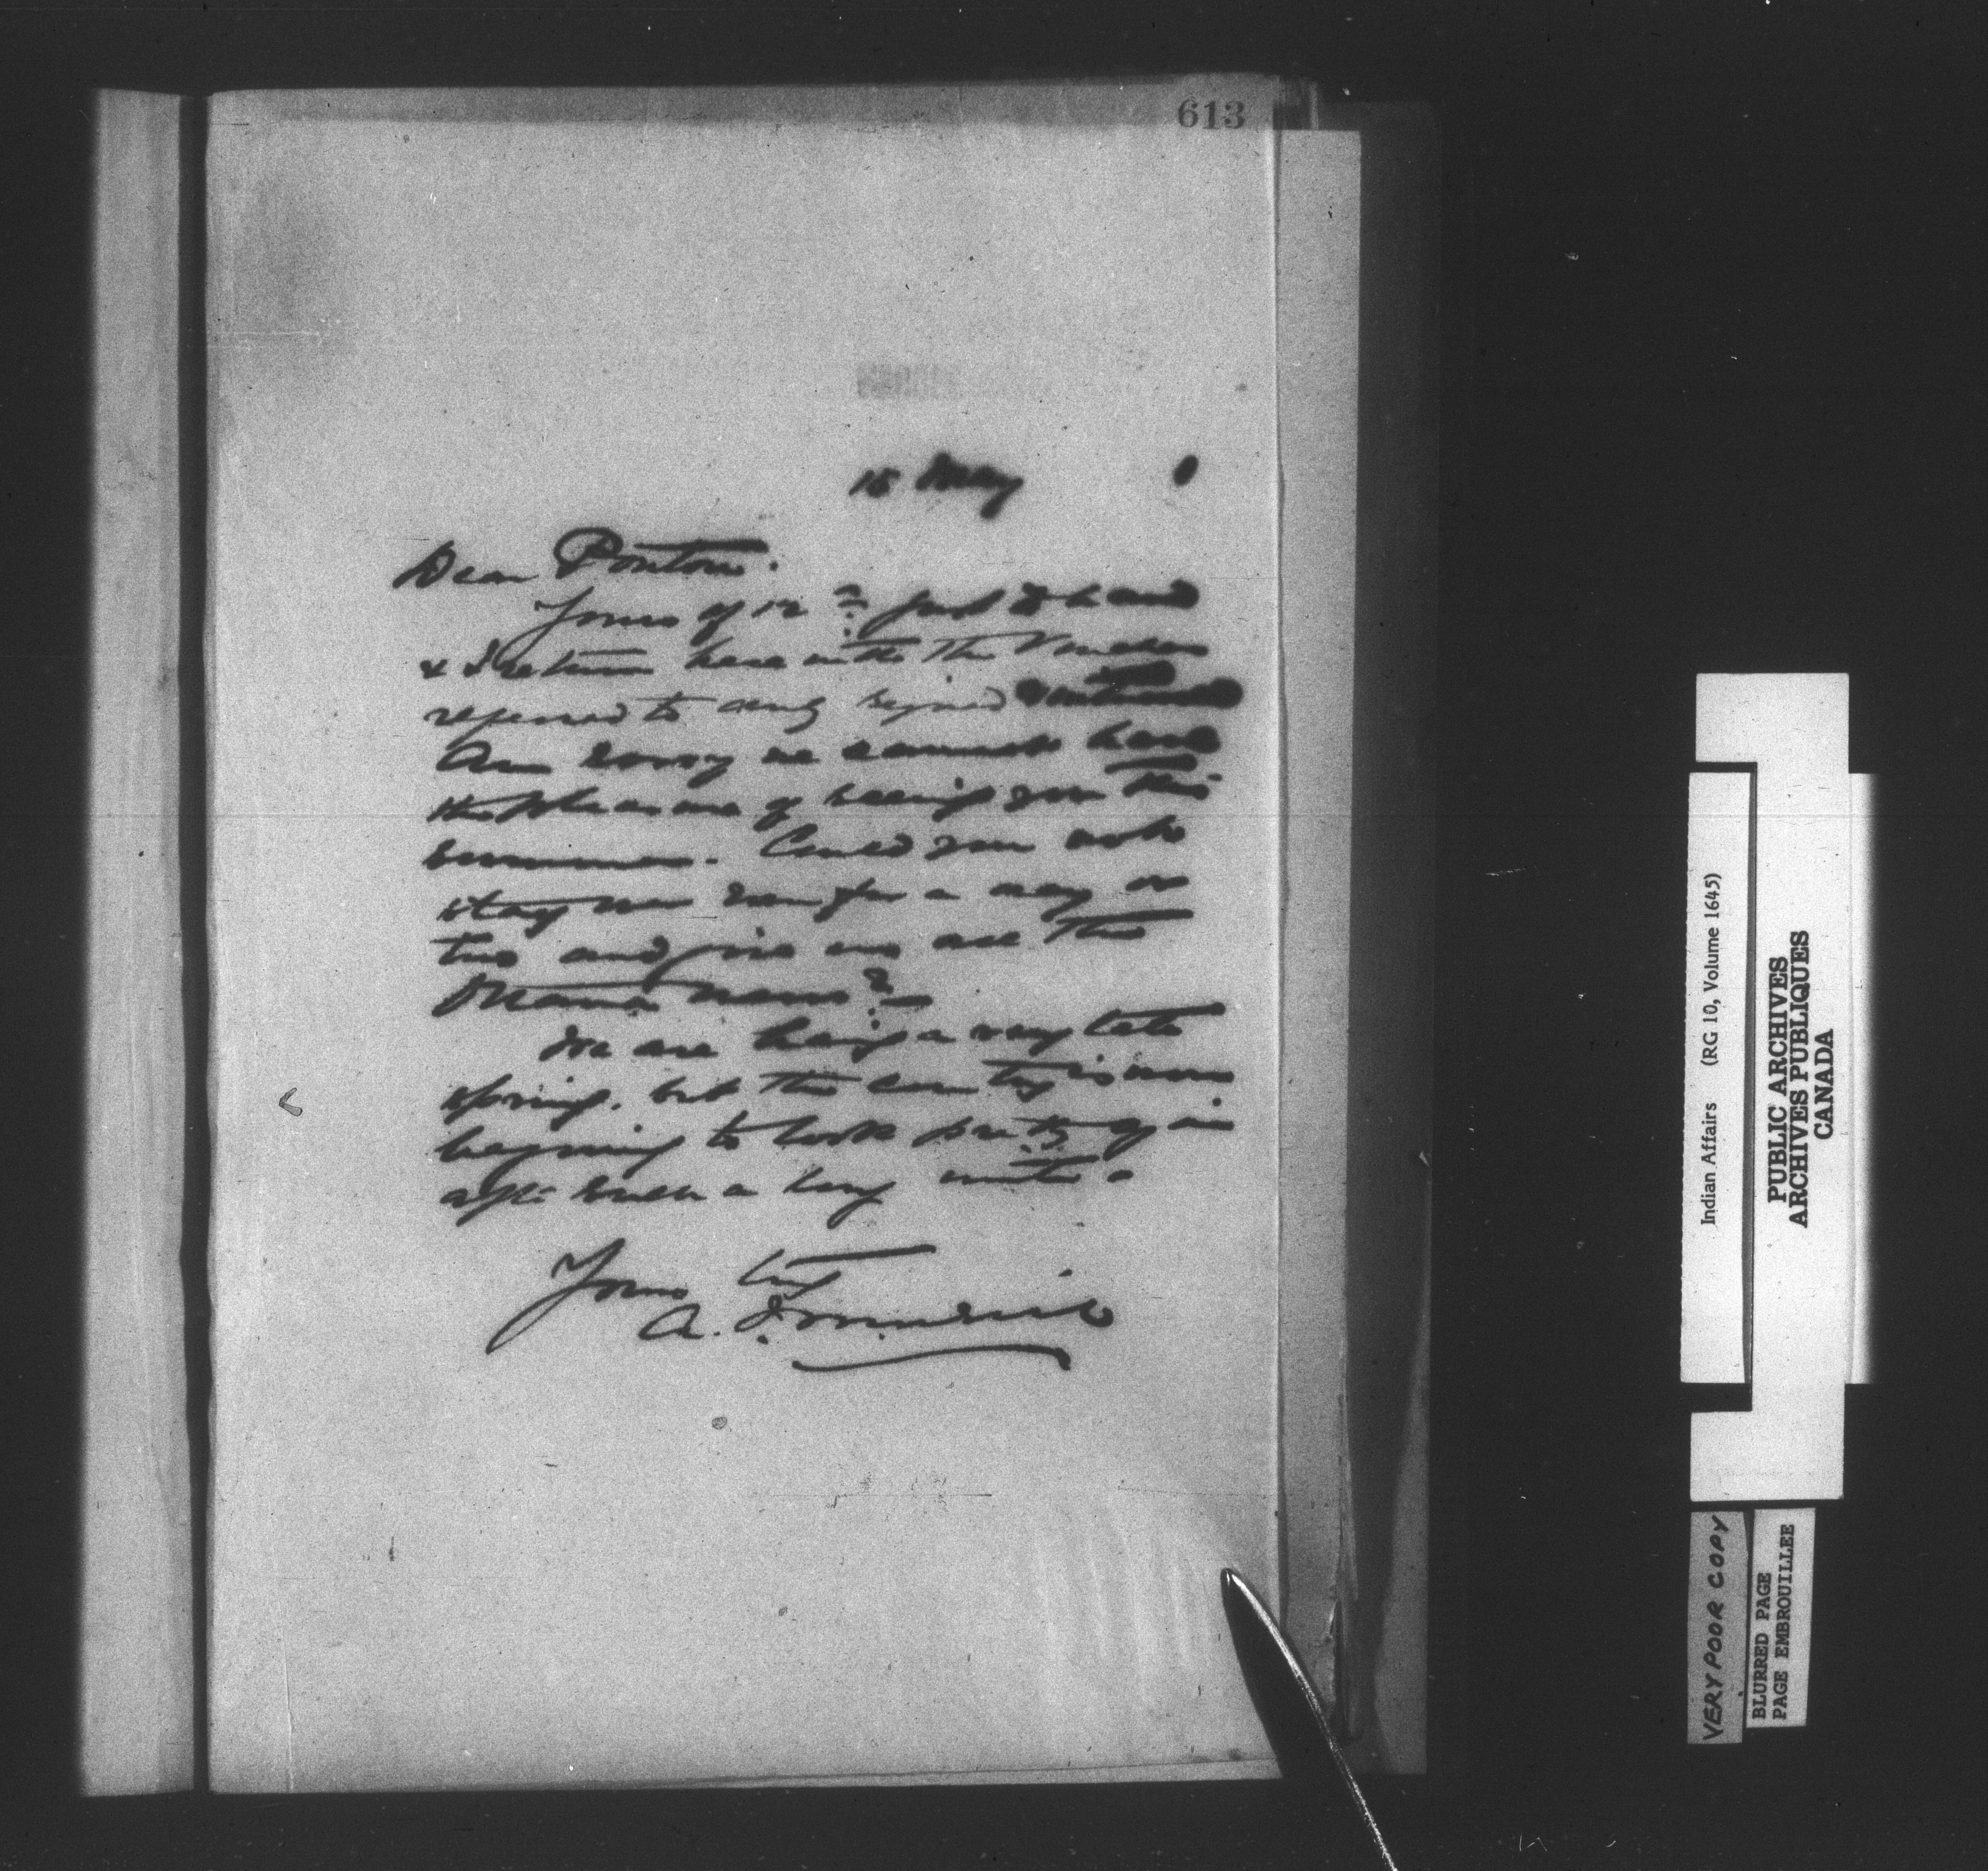 613
15 May
Dear Ponton.
Yours of 12th just to hand
& I return here with the Voucher
referred to duly signed
Am sorry we cannot have
the pleasure of seeing you this
summer. Could you not
stay over for a day or
two and give us all the
news?
We are having a very late
spring, but the country is now
begining to look pretty again
after such a long winter.
Yours try
A.
Indian Affairs (RG 10, Volume 1645)
PUBLIC ARCHIVES
ARCHIVES PUBLIQUES
CANADA
VERY POOR COPY
BLURRED PAGE
PAGE EMBROUILLEE